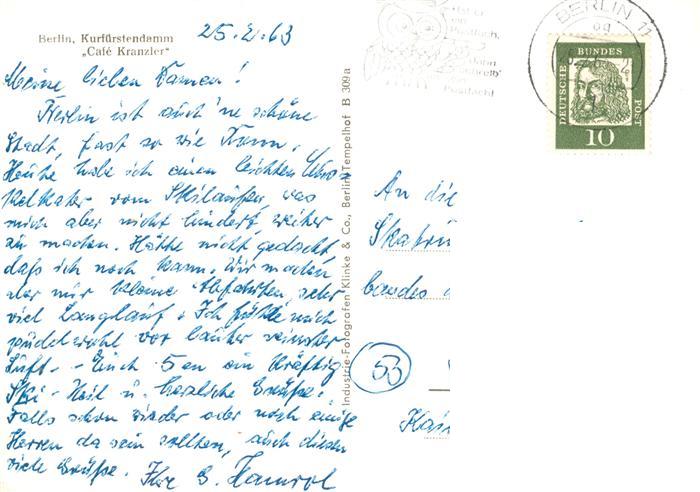 Berlin, Kurfürstendamm
„Café Kranzler"
25.2.63
Meine lieben Damen!
Berlin ist auch 'ne schöne
Stadt, fast so wie Bonn.
Heute habe ich einen leichten Mus-
kelkater vom Skilaufen, was
mich aber nicht hindert, weiter
zu machen. Hätte nicht gedacht,
daß ich noch kann. Wir machen
aber nur kleine Abfahrten, sehr
viel Langlauf. Ich fühle mich
pudelwohl vor lauter reinster
Luft. - Euch 5en ein kräftig
Ski-Heil u. herzliche Grüße.
Falls schon wieder oder noch einige
Herren da sein sollten, auch diesen
viele Grüße. Ihr G.
Industrie-Fotografen Klinke & Co., Berlin-Tempelhof B 309a
BERLIN 11
Postfach,
Postfach!
DEUTSCHE BUNDES POST
10
An die
bandes
53